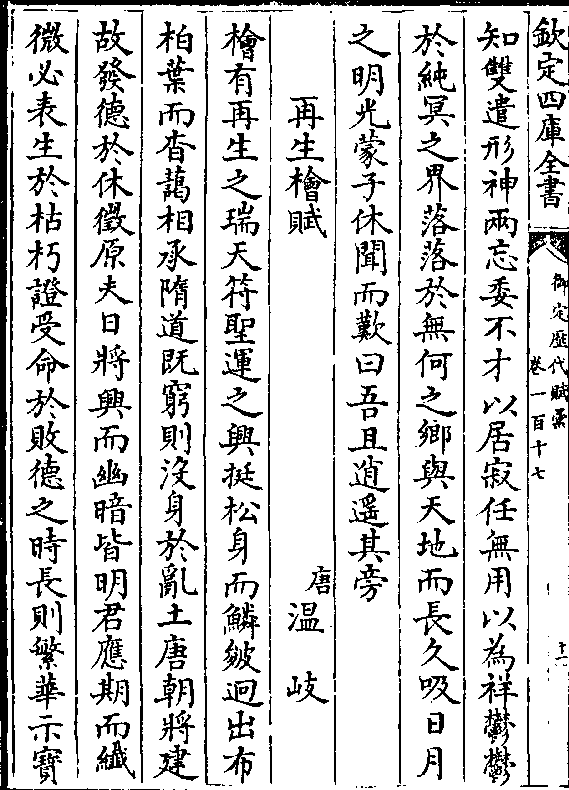 欽定四庫全書
御定歷代賦彙
卷一百十七
十二
知雙遣形神兩忘委不才以居寂任無用以為祥鬱鬱
於純冥之界落落於無何之鄉與天地而長久吸日月
之明光蒙子休聞而歎曰吾且逍遙其旁
再生檜賦
唐溫岐
檜有再生之瑞天符聖運之興挺松身而鱗皴迥出布
柏葉而杳藹相承隋道既窮則沒身於亂土唐朝將建
故發德於休徵原夫日將興而幽暗皆明君應期而纖
微必表生於枯朽證受命於敗德之時長則繁華示寶